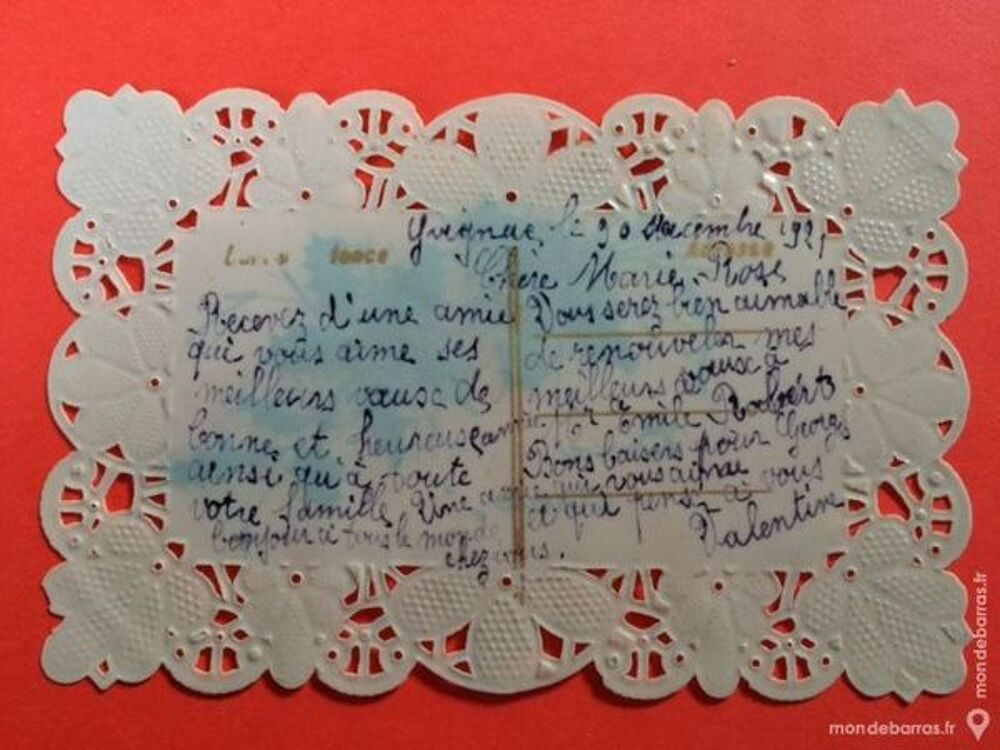 Yvignac, le 30 décembre 192
Adresse
Chère Marie, Rose
Recevez d'une amie
qui vous aime ses
meilleurs vœux de
bonne et heureuse année
ainsi qu'à toute
votre famille Une amie
bonjour à tous le monde
chez vous.
Vous serez bien aimable
de renouveler mes
meilleurs vœux à
Mr Emile Robert
Bons baisers pour Georges
qui vous aime
et qui pense à vous
Valentine
mondebarras.fr
mondebarras.fr